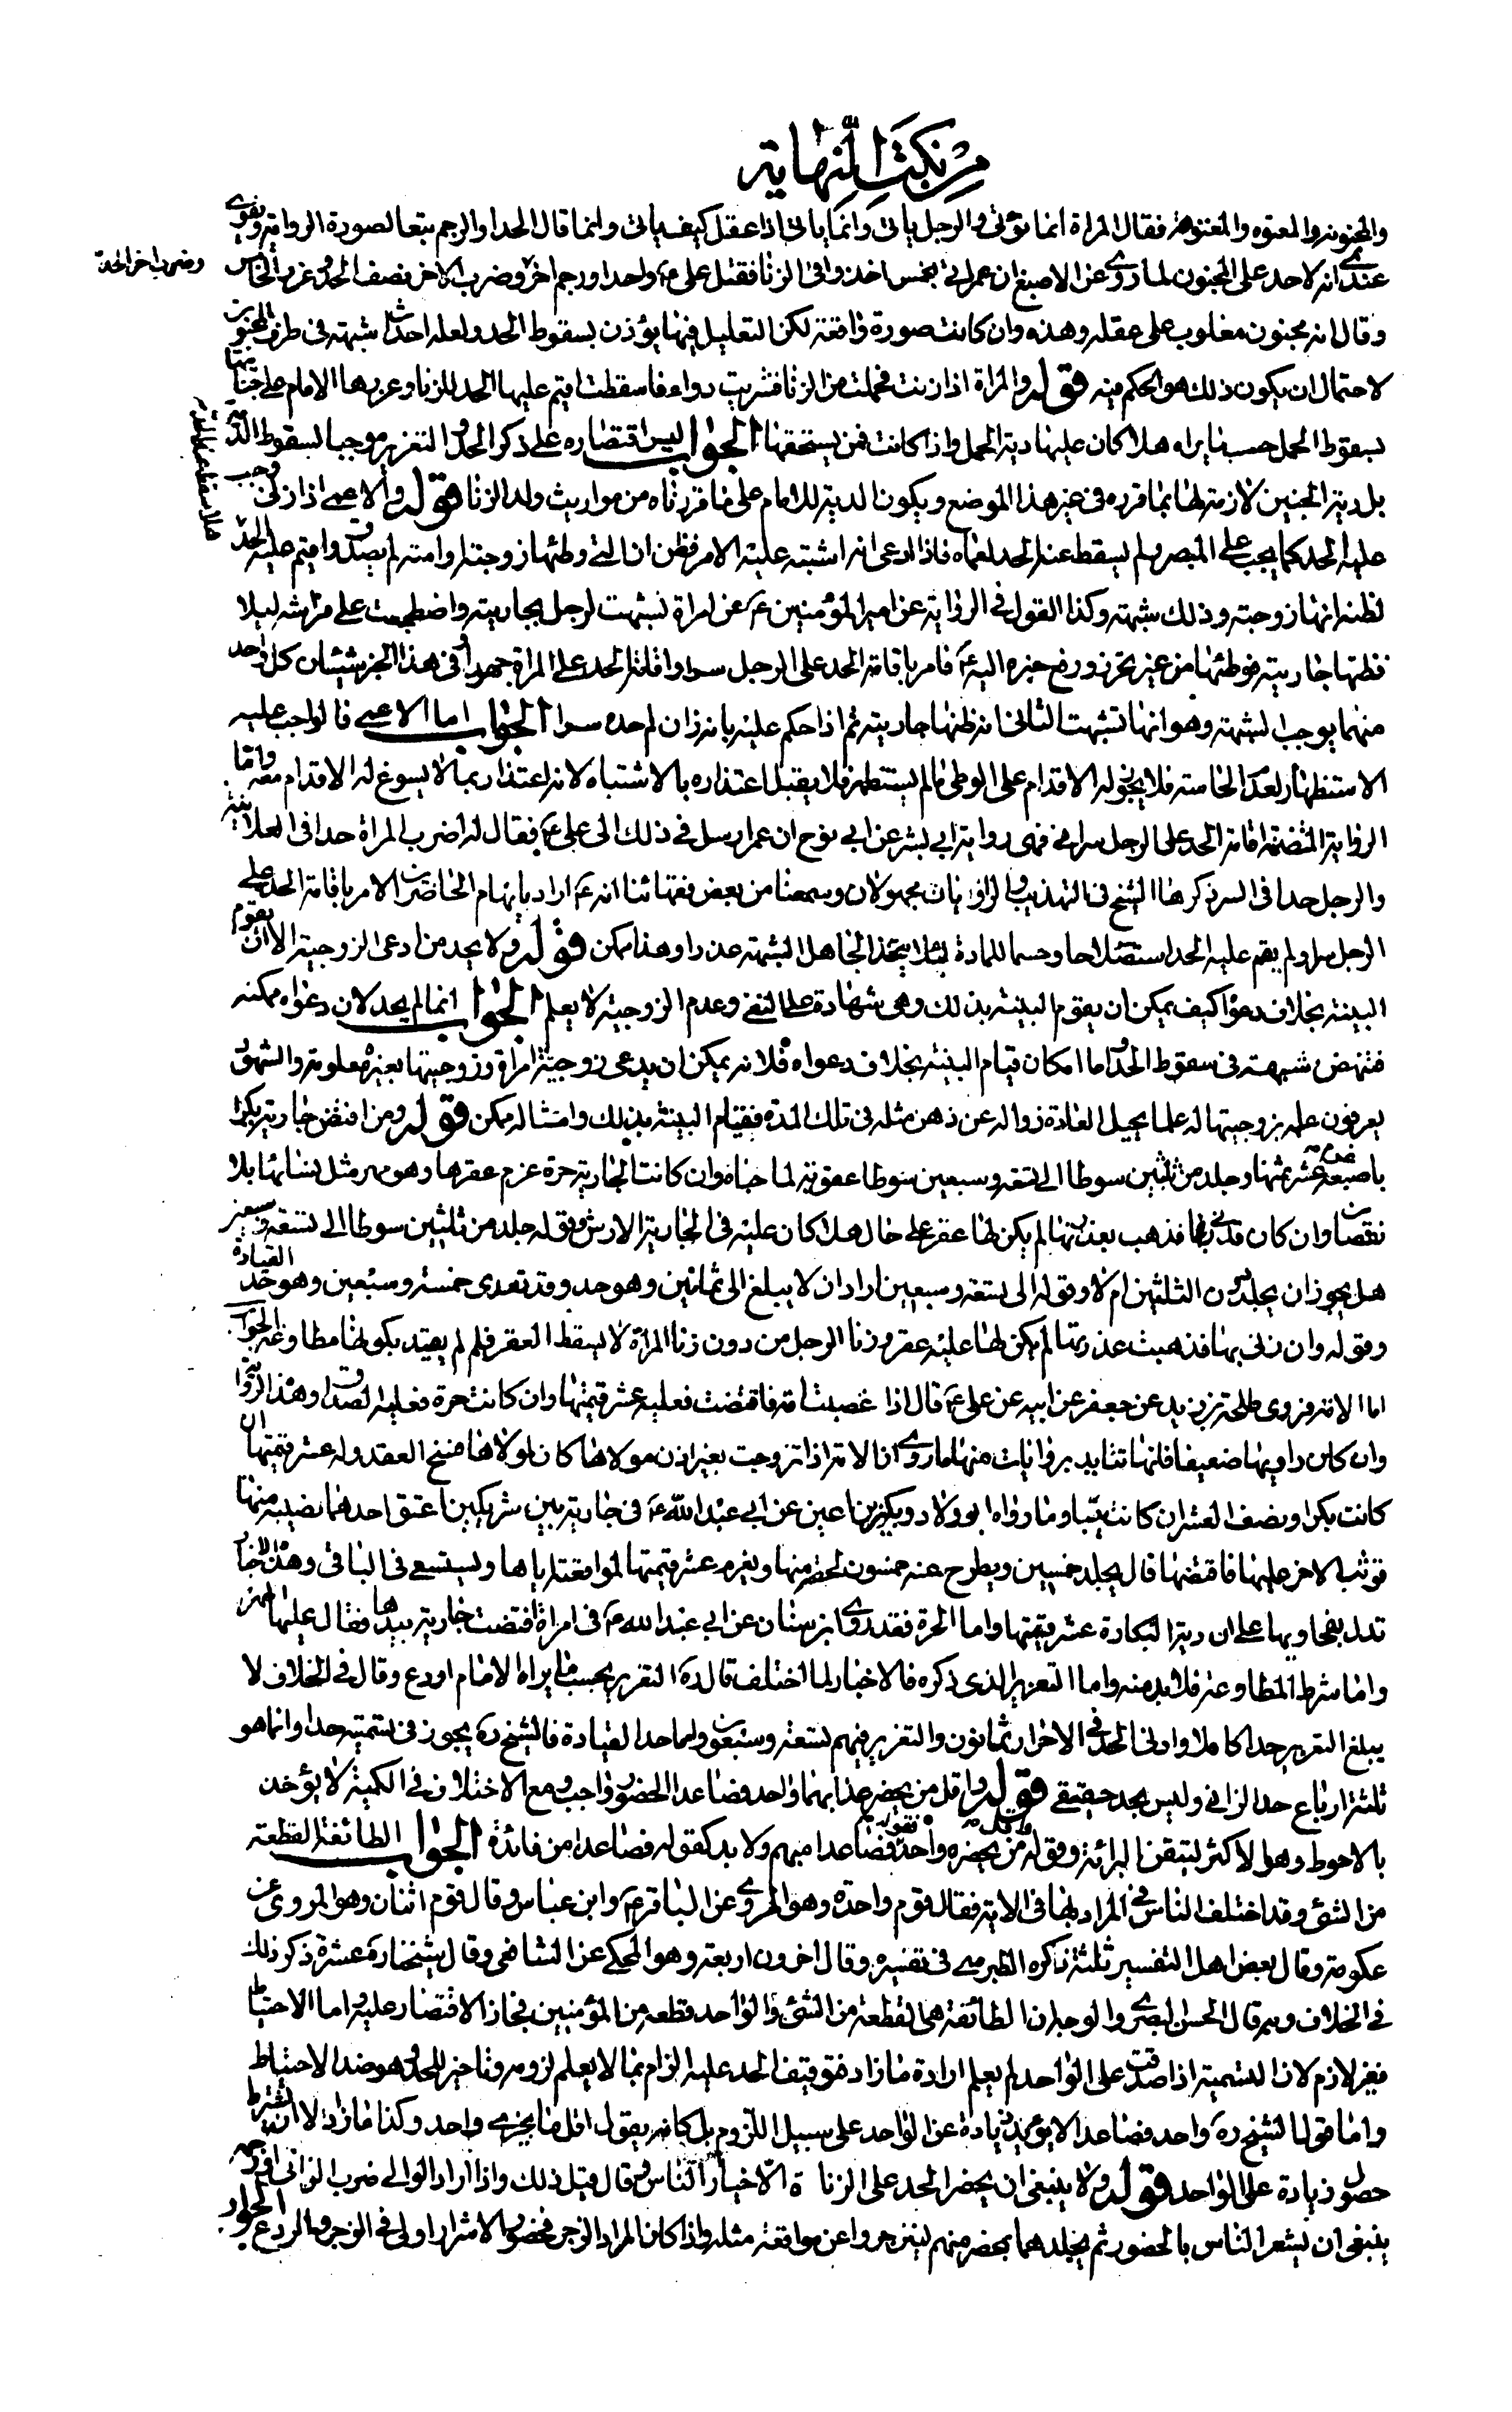 من نكت النهاية
والمجنونة والمعتوه والمعتوهة فقال المراة انما تؤتى والرجل ياتى وانما ياتى اذا عقل كيف ياتى وانما قال الحد او الرجم تبعا لصورة الرواية ويقوى
عندى انه لا حد على المجنون لما روى عن الاصبغ ان عمر اتى بخمس اخذوا فى الزنا فقتل على ع واحدا ورجم اخر وضرب الاخر نصف الحد وعزر الخامس
وضرب اخر الحد
وقال انه مجنون مغلوب على عقله وهذه وان كانت صورة واقعة لكن التعليل فيها يؤذن بسقوط الحد ولعله احداث شبهة فى طرف المجنون
لاحتمال ان يكون ذلك هو الحكم فيه قوله والمراة اذا زنت فحملت من الزنا فشربت دواء فاسقطت اقيم عليها الحد للزنا وعزرها الامام على جنايتها
بسقوط الحمل حسب ما يراه هلا كان عليها دية الحمل واذا كانت فمن يستحقها الجواب ليس اقتصاره على ذكر الحد والتعزير موجبا لسقوط الدية
بل دية الجنين لازمة لها بما قرره فى غير هذا الموضع ويكون الدية للامام على ما قررناه من مواريث ولد الزنا قوله والاعمى اذا زنى وجب
عليه الحد كما يجب على المبصر ولم يسقط عنه الحد لعماه فاذا ادعى انه اشتبه عليه الامر فظن ان التى وطئها زوجته او امته لم يصدق واقيم عليه الحد
لظنه انها زوجته وذلك شبهة وكذا القول فى الرواية عن امير المؤمنين ع عن امراة تشبهت لرجل بجاريته واضطجعت على فراشه ليلا
فظنها جاريته فوطئها من غير تحرز ورفع خبره اليه ع فامر باقامة الحد على الرجل سرا واقامة الحد على المراة جهرا وفى هذا الخبر شيئان كل واحد
منهما يوجب الشبهة وهو انها تشبهت الثانى انه ظنها جاريته ثم اذا حكم عليه بانه زان لم حده سرا الجواب اما الاعمى فالواجب عليه
الاستظهار لعدم الحاسة فلا يجوز له الاقدام على الوطى ما لم يستظهر فلا يقبل اعتذاره بالاشتباه لانه اعتذار بما لا يسوغ له الاقدام معه واما
الرواية المتضمنة اقامة الحد على الرجل سرا فهى رواية ابى بشر عن ابى نوح ان عمر ارسل فى ذلك الى على ع فقال له اضرب المراة حدا فى العلانية
والرجل حدا فى السر ذكرها الشيخ فى التهذيب والراويان مجهولان وسمعنا من بعض فقهائنا انه ع اراد بايهام الحاضرين الامر باقامة الحد على
الرجل سرا ولم يقم عليه الحد استصلاحا وحسما للمادة لئلا يتخذ الجاهل الشبهة عذرا وهذا ممكن قوله ولا يحد من ادعى الزوجية الا ان يقوم
البينة بخلاف دعواه كيف يمكن ان يقوم البينة بذلك وهى شهادة على النفى وعدم الزوجية لا يعلم الجواب انما لم يحد لان دعواه ممكنة
فتنهض شبهة فى سقوط الحد واما امكان قيام البينة بخلاف دعواه فلانه يمكن ان يدعى زوجية امراة وزوجيتها بغيره معلومة والشهود
يعرفون علمه بزوجيتها له علما يحيل العادة زواله عن ذهن مثله فى تلك المدة فقيام البينة بذلك وامثاله ممكن قوله ومن افتض جارية بكرا
باصبعه غرم عشر ثمنها وجلد من ثلثين سوطا الى تسعة وسبعين سوطا عقوبة لما جناه وان كانت الجارية حرة غرم عقرها وهو مهر مثل نسائها بلا
نقصان وان كان قد زنى بها فذهب بعذرتها لم يكن لها عقر على حال هلا كان عليه فى الجارية الارش وقوله جلد من ثلثين سوطا الى تسعة وسبعين
هل يجوز ان يجلد دون الثلثين ام لا وقوله الى تسعة وسبعين اراد ان لا يبلغ الى ثمانين وهو حد وقد تعدى خمسة وسبعين وهو حد القيادة
وقوله وان زنى بها فذهبت عذرتها لم يكن لها عليه عقر وزنا الرجل من دون زنا المراة لا يسقط العقر فلم لم يقيد بكونها مطاوعة الجواب
اما الامة فروى طلحة بن زيد عن جعفر عن ابيه عن على ع قال اذا غصبت امة فاقتضت فعليه عشر قيمتها وان كانت حرة فعليه الصداق وهذه الرواية
وان كان راويها ضعيفا فانها تتايد بروايات منها ما روى ان الامة اذا تزوجت بغير اذن مولاها كان لمولاها فسخ العقد وله عشر قيمتها ان
كانت بكرا ونصف العشر ان كانت ثيبا وما رواه ابو ولاد وبكير بن اعين عن ابى عبد الله ع فى جارية بين شريكين اعتق احدهما نصيبه منها
فوثب الاخر عليها فاقتضها قال يجلد خمسين ويطرح عنه خمسون لحقه منها ويغرم عشر قيمتها لمواقعته اياها ويستسعى فى الباقى وهذه الاخبار
تدل بفحاويها على ان دية البكارة عشر قيمتها واما الحرة فقد روى ابن سنان عن ابى عبد الله ع فى امراة افتضت جارية بيدها فقال عليها المهر
واما شرط المطاوعة فلا بد منه واما التعزير الذى ذكره فالاخبار لما اختلف قال ره التعزير بحسب ما يراه الامام اردع وقال فى الخلاف لا
يبلغ التعزير حدا كاملا وادنى الحد فى الاحرار ثمانون والتعزير فيهم تسعة وسبعون واما حد القيادة فالشيخ ره يجوز فى تسميته حدا وانما هو
ثلثة ارباع حد الزانى وليس بحد حقيقى قوله واقل من يحضر عذابهما واحد فصاعدا الحضور واجب ومع الاختلاف فى الكمية لا يؤخذ
بالاحوط وهو الاكثر لتيقن البرائة وقوله واقل من يحضره واحد فصاعدا مبهم ولا بد كقوله فصاعدا من فائدة الجواب الطائفة القطعة
من الشئ وقد اختلف الناس فى المراد بها فى الاية فقال قوم واحدة وهو المروى عن الباقر ع وابن عباس وقال قوم اثنان وهو المروى عن
عكرمة وقال بعض اهل التفسير ثلثة ذكره الطبرسى فى تفسيره وقال اخرون اربعة وهو المحكى عن الشافعى وقال شيخنا ره عشرة ذكر ذلك
فى الخلاف وبه قال الحسن البصرى والوجه ان الطائفة هى القطعة من الشئ والواحد قطعة من المؤمنين فجاز الاقتصار عليه واما الاحتياط
فغير لازم لان التسمية اذا صدقت على الواحد لم يعلم ارادة ما زاد فتوقيف الحد عليه الزام بما لا يعلم لزومه وتاخير للحد وهو ضد الاحتياط
واما قول الشيخ ره واحد فصاعدا لا يؤيد زيادة عن الواحد على سبيل اللزوم بل كانه يقول اقل ما يجزى واحد وكذا ما زاد لا انه اشترط
حصول زيادة على الواحد قوله ولا ينبغى ان يحضر الحد على الزناة الا خيار الناس وقال قبل ذلك واذا اراد الوالى ضرب الزانى او رجمه
ينبغى ان يشعر الناس بالحضور ثم يجلدهما بمحضر منهم لينزجروا عن مواقعة مثله واذا كان المراد الزجر فحضور الاشرار اولى فى الزجر والردع الجواب